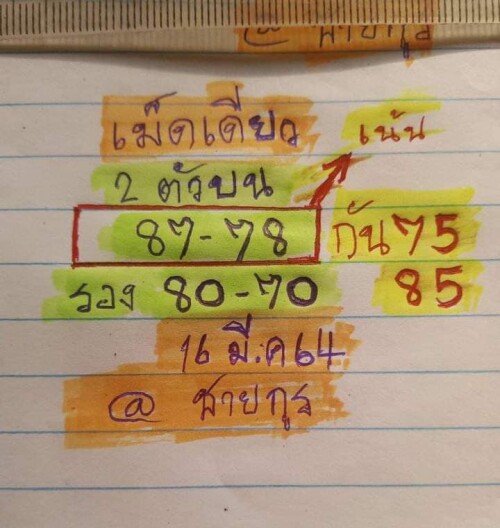 เม็ดเดียว
เน้น
2 ตัวบน
87-78
กัน 75
85
รอง 80-70
16 มี.ค 64
@ ชายกูร